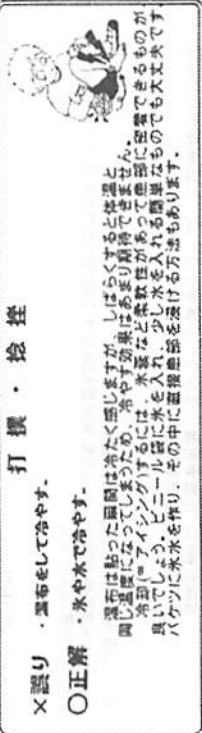 打撲・捻挫
×誤り ・湿布をして冷やす。
○正解 ・氷や水で冷やす。
湿布は貼った瞬間は冷たく感じますが、しばらくすると体温と
同じ温度になってしまうため、冷やす効果はあまり期待できません。
冷却(=アイシング)するには、氷嚢など柔軟性があって患部に密着できるものが
良いでしょう。ビニール袋に氷を入れ、少し水を入れる簡単なものでも大丈夫です。
バケツに氷水を作り、その中に直接患部を浸ける方法もあります。